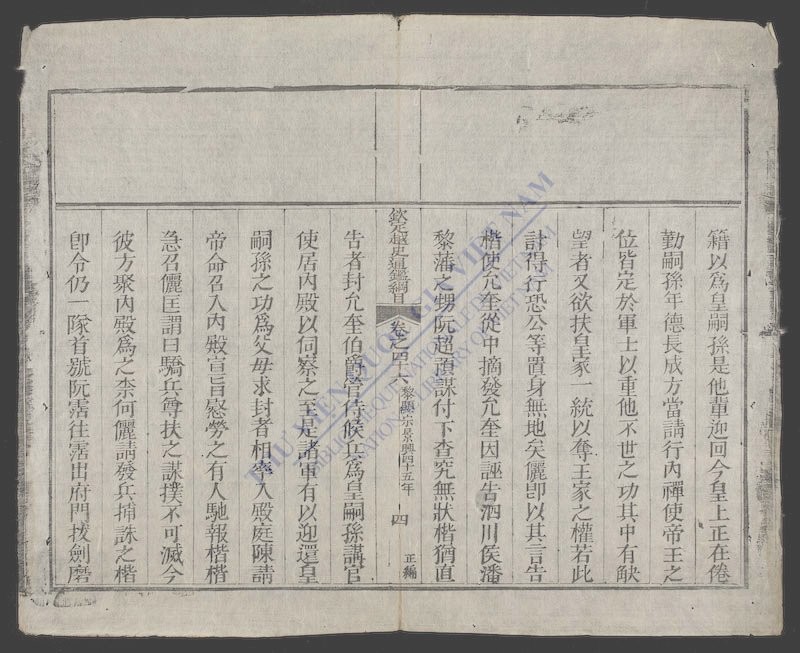 籍以爲皇嗣孫是他軰迎回今皇上正在倦
勤嗣孫年德長成方當請行內禪使帝王之
位皆定於軍士以重他不世之功其中有觖
望者又欲扶皇家一統以奪王家之權若此
計得行恐公等置身無地矣儷卽以其言告
楷使允奎從中摘發允奎因誣告泗川侯潘
黎藩之甥阮超預謀付下查究無狀楷猶直
欽定越史通鑑綱目
卷之四十六 黎顯宗景興四十五年 四 正編
告者封允奎伯爵管侍候兵爲皇嗣孫講官
使居內殿以伺察之至是諸軍有以迎還皇
嗣孫之功爲父母求封者相率入殿庭陳請
帝命召入內殿宣旨慰勞之有人馳報楷楷
急召儷匡謂曰驕兵尊扶之謀撲不可滅今
彼方聚內殿爲之柰何儷請發兵捕誅之楷
卽令仍一隊首號阮霑往霑出府門拔劍磨
THƯ VIỆN QUỐC GIA VIỆT NAM
BIBLIOTHÈQUE NATIONALE DU VIETNAM
NATIONAL LIBRARY OF VIETNAM